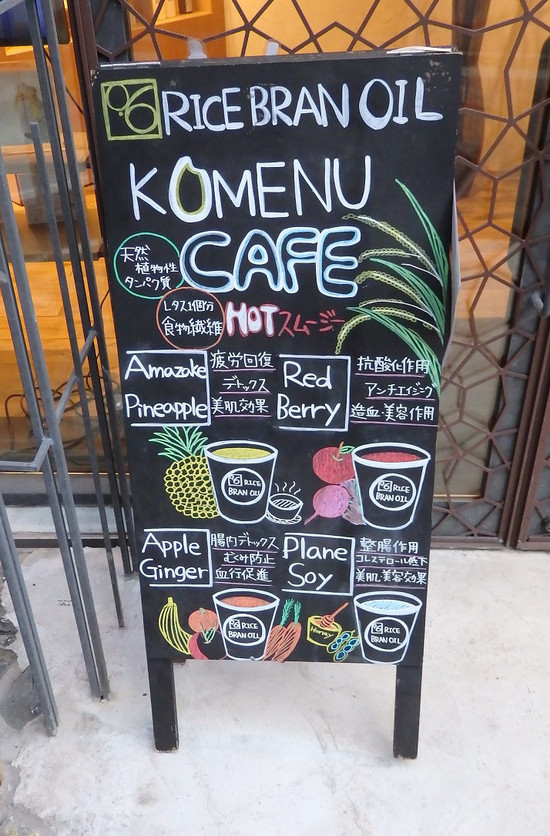 RICE BRAN OIL
KOMENU
CAFE
天然
植物性
タンパク質
レタス1個分
食物繊維
HOTスムージー
Amazake
Pineapple
疲労回復
デトックス
美肌効果
Red
Berry
抗酸化作用
アンチエイジング
造血・美容作用
RICE
BRAN OIL
RICE
BRAN OIL
Apple
Ginger
腸内デトックス
むくみ防止
血行促進
Plane
Soy
整腸作用
コレステロール低下
美肌・美容効果
RICE
BRAN OIL
Honey
RICE
BRAN OIL